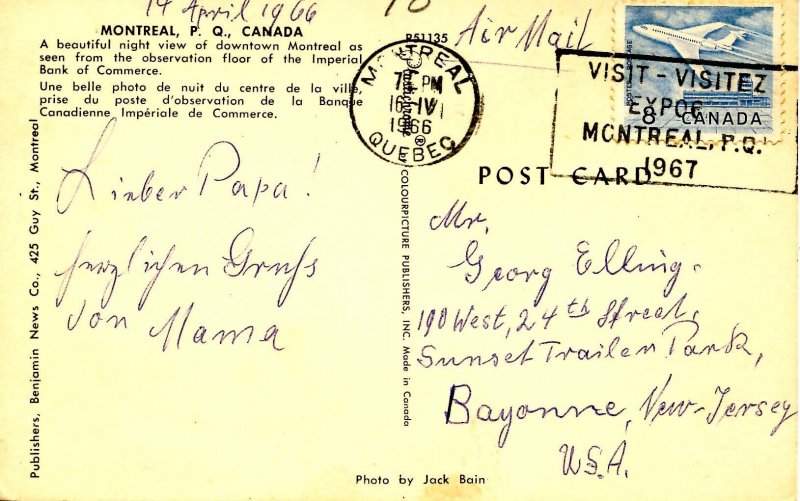 14 April 1966
MONTREAL, P. Q., CANADA
A beautiful night view of downtown Montreal as
seen from the observation floor of the Imperial
Bank of Commerce.
Une belle photo de nuit du centre de la ville,
prise du poste d'observation de la Banque
Canadienne Impériale de Commerce.
Lieber Papa!
herzlichen Gruhs
von Mama
Publishers, Benjamin News Co., 425 Guy St., Montreal
P51135
MONTREAL
PM
16 IV
1966
QUEBEC
by COLOURPICTURE PUBLISHERS, INC. Made in Canada
Air Mail
POSTES POSTAGE
8 CANADA
VISIT - VISITEZ
EXPO
MONTREAL, P.Q.
1967
POST CARD
Mr.
Georg Elling.
190 West, 24th Street,
Sunset Trailer Park,
Bayonne, New-Jersey
U.S.A.
Photo by Jack Bain